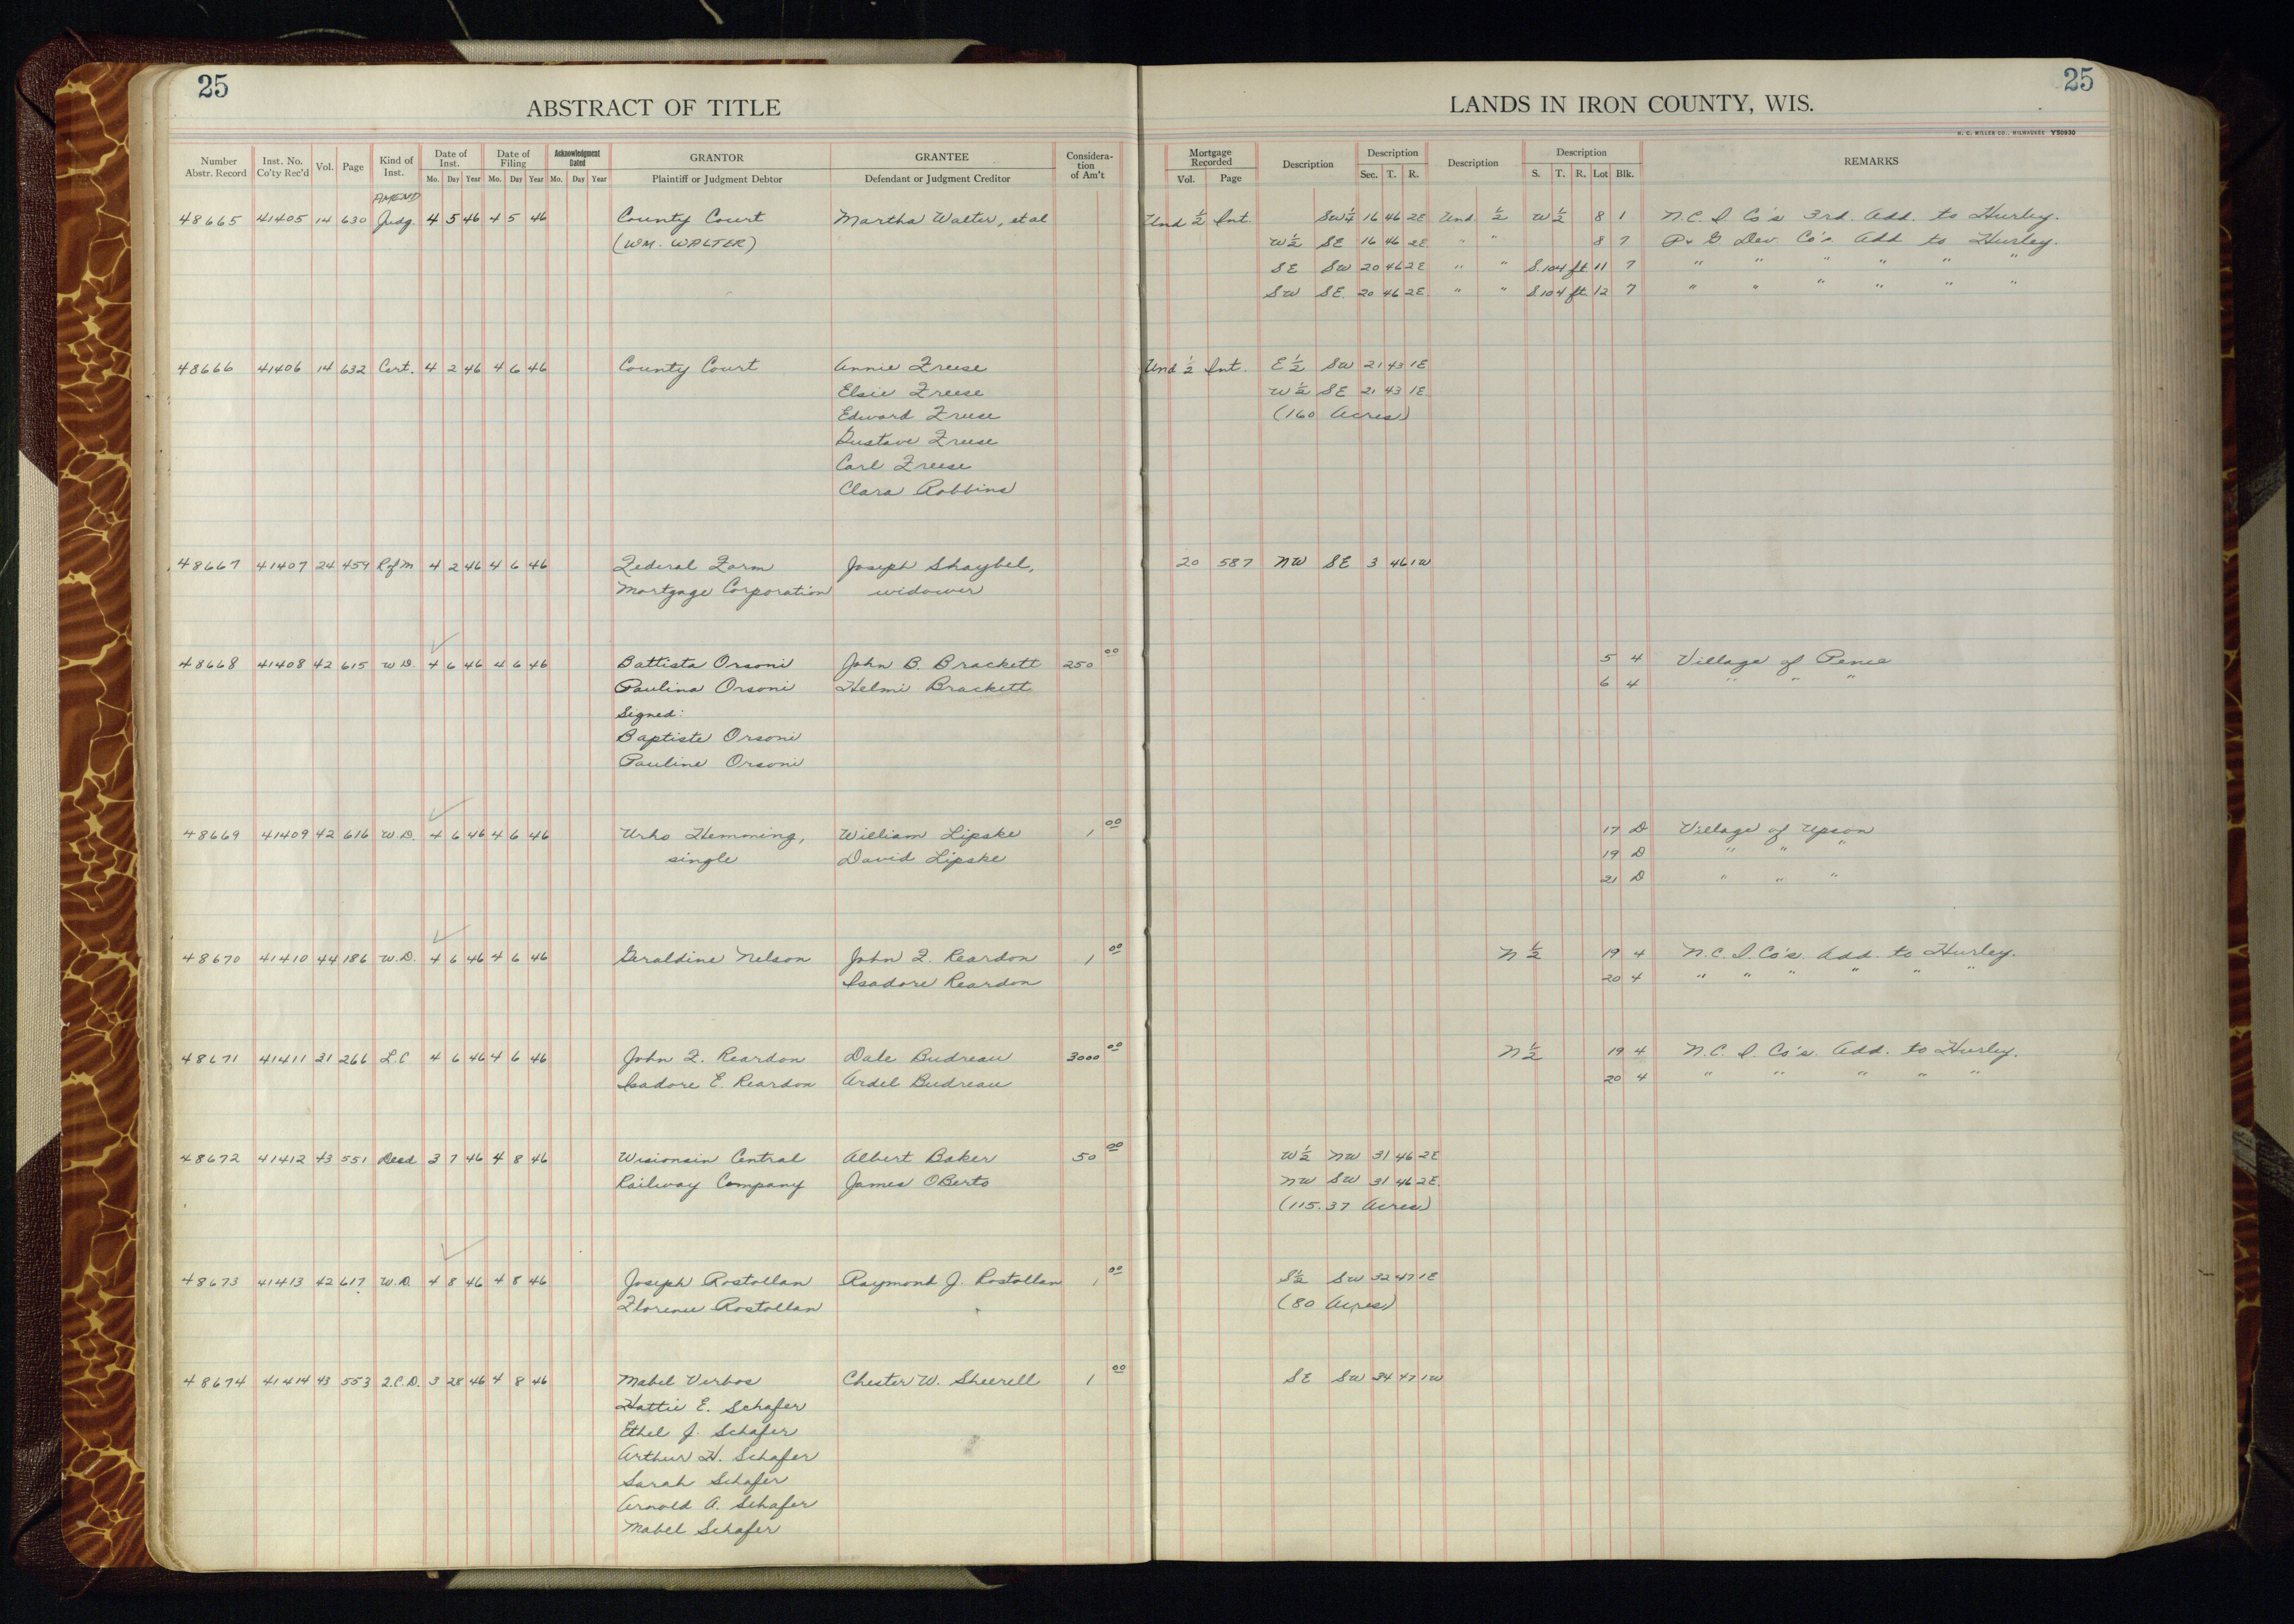 25
25
ABSTRACT OF TITLE
LANDS IN IRON COUNTY, WIS.
H. C. MILLER CO., MILWAUKEE Y50930
Number Abstr. Record Inst. No. Co'ty Rec'd Vol. Page Kind of Inst. Date of Inst. Mo. Day Year Date of Filing Mo. Day Year Acknowledgment Dated Mo. Day Year GRANTOR Plaintiff or Judgment Debtor GRANTEE Defendant or Judgment Creditor Considera-tion of Am't Mortgage Recorded Vol. Page Description Description Sec. T. R. Description Description S. T. R. Lot Blk. REMARKS
AMEND
48665 41405 14 630 Judg. 4 5 46 4 5 46 County Court Martha Walter, et al Und ½ Int. SW¼ 16 46 2E Und ½ W½ 8 1 N.C. I. Co's 3rd. Add. to Hurley.
(WM. WALTER) W½ SE 16 46 2E " " 8 7 P. & G. Dev. Co's. Add to Hurley.
SE SW 20 46 2E " " S.104 ft 11 7 " " " " " "
SW SE. 20 46 2E " " S.104 ft. 12 7 " " " " " "
48666 41406 14 632 Cert. 4 2 46 4 6 46 County Court Annie Freese Und ½ Int. E½ SW 21 43 1E
Elsie Freese W½ SE 21 43 1E
Edward Freese (160 Acres)
Gustave Freese
Carl Freese
Clara Robbins
48667 41407 24 459 R of M 4 2 46 4 6 46 Federal Farm Joseph Shaybel, 20 587 NW SE 3 46 1W
Mortgage Corporation widower
48668 41408 42 615 W.D. 4 6 46 4 6 46 Battista Orsoni John B. Brackett 250 00 5 4 Village of Pence
Paulina Orsoni Helmi Brackett 6 4 " " "
Signed:
Baptiste Orsoni
Pauline Orsoni
48669 41409 42 616 W.D. 4 6 46 4 6 46 Urho Hemming, William Lipske 1 00 17 D Village of Upson
single David Lipske 19 D " " "
21 D " " "
48670 41410 44 186 W.D. 4 6 46 4 6 46 Geraldine Nelson John F. Reardon 1 00 N½ 19 4 N.C. I. Co's. Add. to Hurley.
Isadore Reardon 20 4 " " " " " "
48671 41411 21 266 L.C 4 6 46 4 6 46 John F. Reardon Dale Budreau 3000 00 N½ 19 4 N.C. I. Co's. Add. to Hurley.
Isadore E. Reardon Ardel Budreau 20 4 " " " " "
48672 41412 43 551 Deed 3 7 46 4 8 46 Wisconsin Central Albert Baker 50 00 W½ NW 31 46 2E
Railway Company James OBerto NW SW 31 46 2E.
(115.37 Acres)
48673 41413 42 617 W.D. 4 8 46 4 8 46 Joseph Rostollan Raymond J. Rostollan 1 00 S½ SW 32 47 1E
Florence Rostollan (80 Acres)
48674 41414 43 553 Q.C.D. 3 28 46 4 8 46 Mabel Verbos Chester W. Sheerell 1 00 SE SW 34 47 1W
Hattie E. Schafer
Ethel J. Schafer
Arthur H. Schafer
Sarah Schafer
Arnold A. Schafer
Mabel Schafer